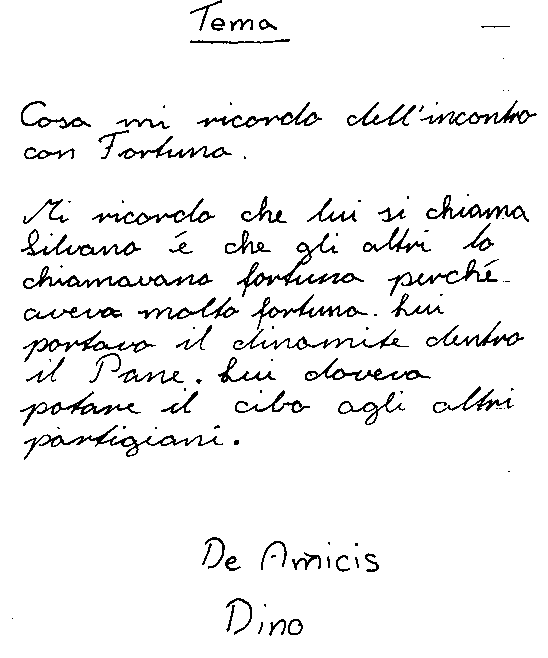 Tema
Cosa mi ricordo dell'incontro
con Fortuna.
Mi ricordo che lui si chiama
Silvano é che gli altri lo
chiamavano fortuna perché
aveva molta fortuna. Lui
portava il dinamite dentro
il Pane. Lui doveva
potare il cibo agli altri
partigiani.
De Amicis
Dino